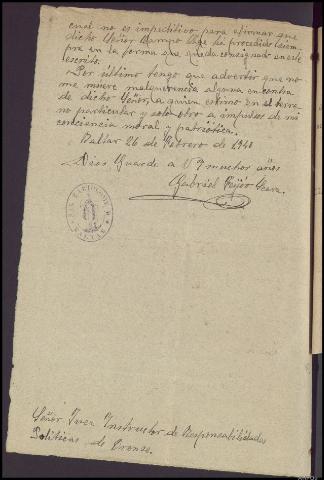 cual no es impeditivo para afirmar que
dicho Señor Campo ha procedido siem
pre en la forma que queda consignado en este
escrito.
Por último tengo que advertir que no
me mueve malquerencia alguna en contra
de dicho Señor, a quien estimo en el terre
no particular y solo obro a impulsos de mi
conciencia moral y patriótica.
Baltar 26 de Febrero de 1940
Dios Guarde a V. muchos años
Gabriel Feijóo
BALTAR
Señor Juez Instructor de Responsabilidades
Políticas de Orense.